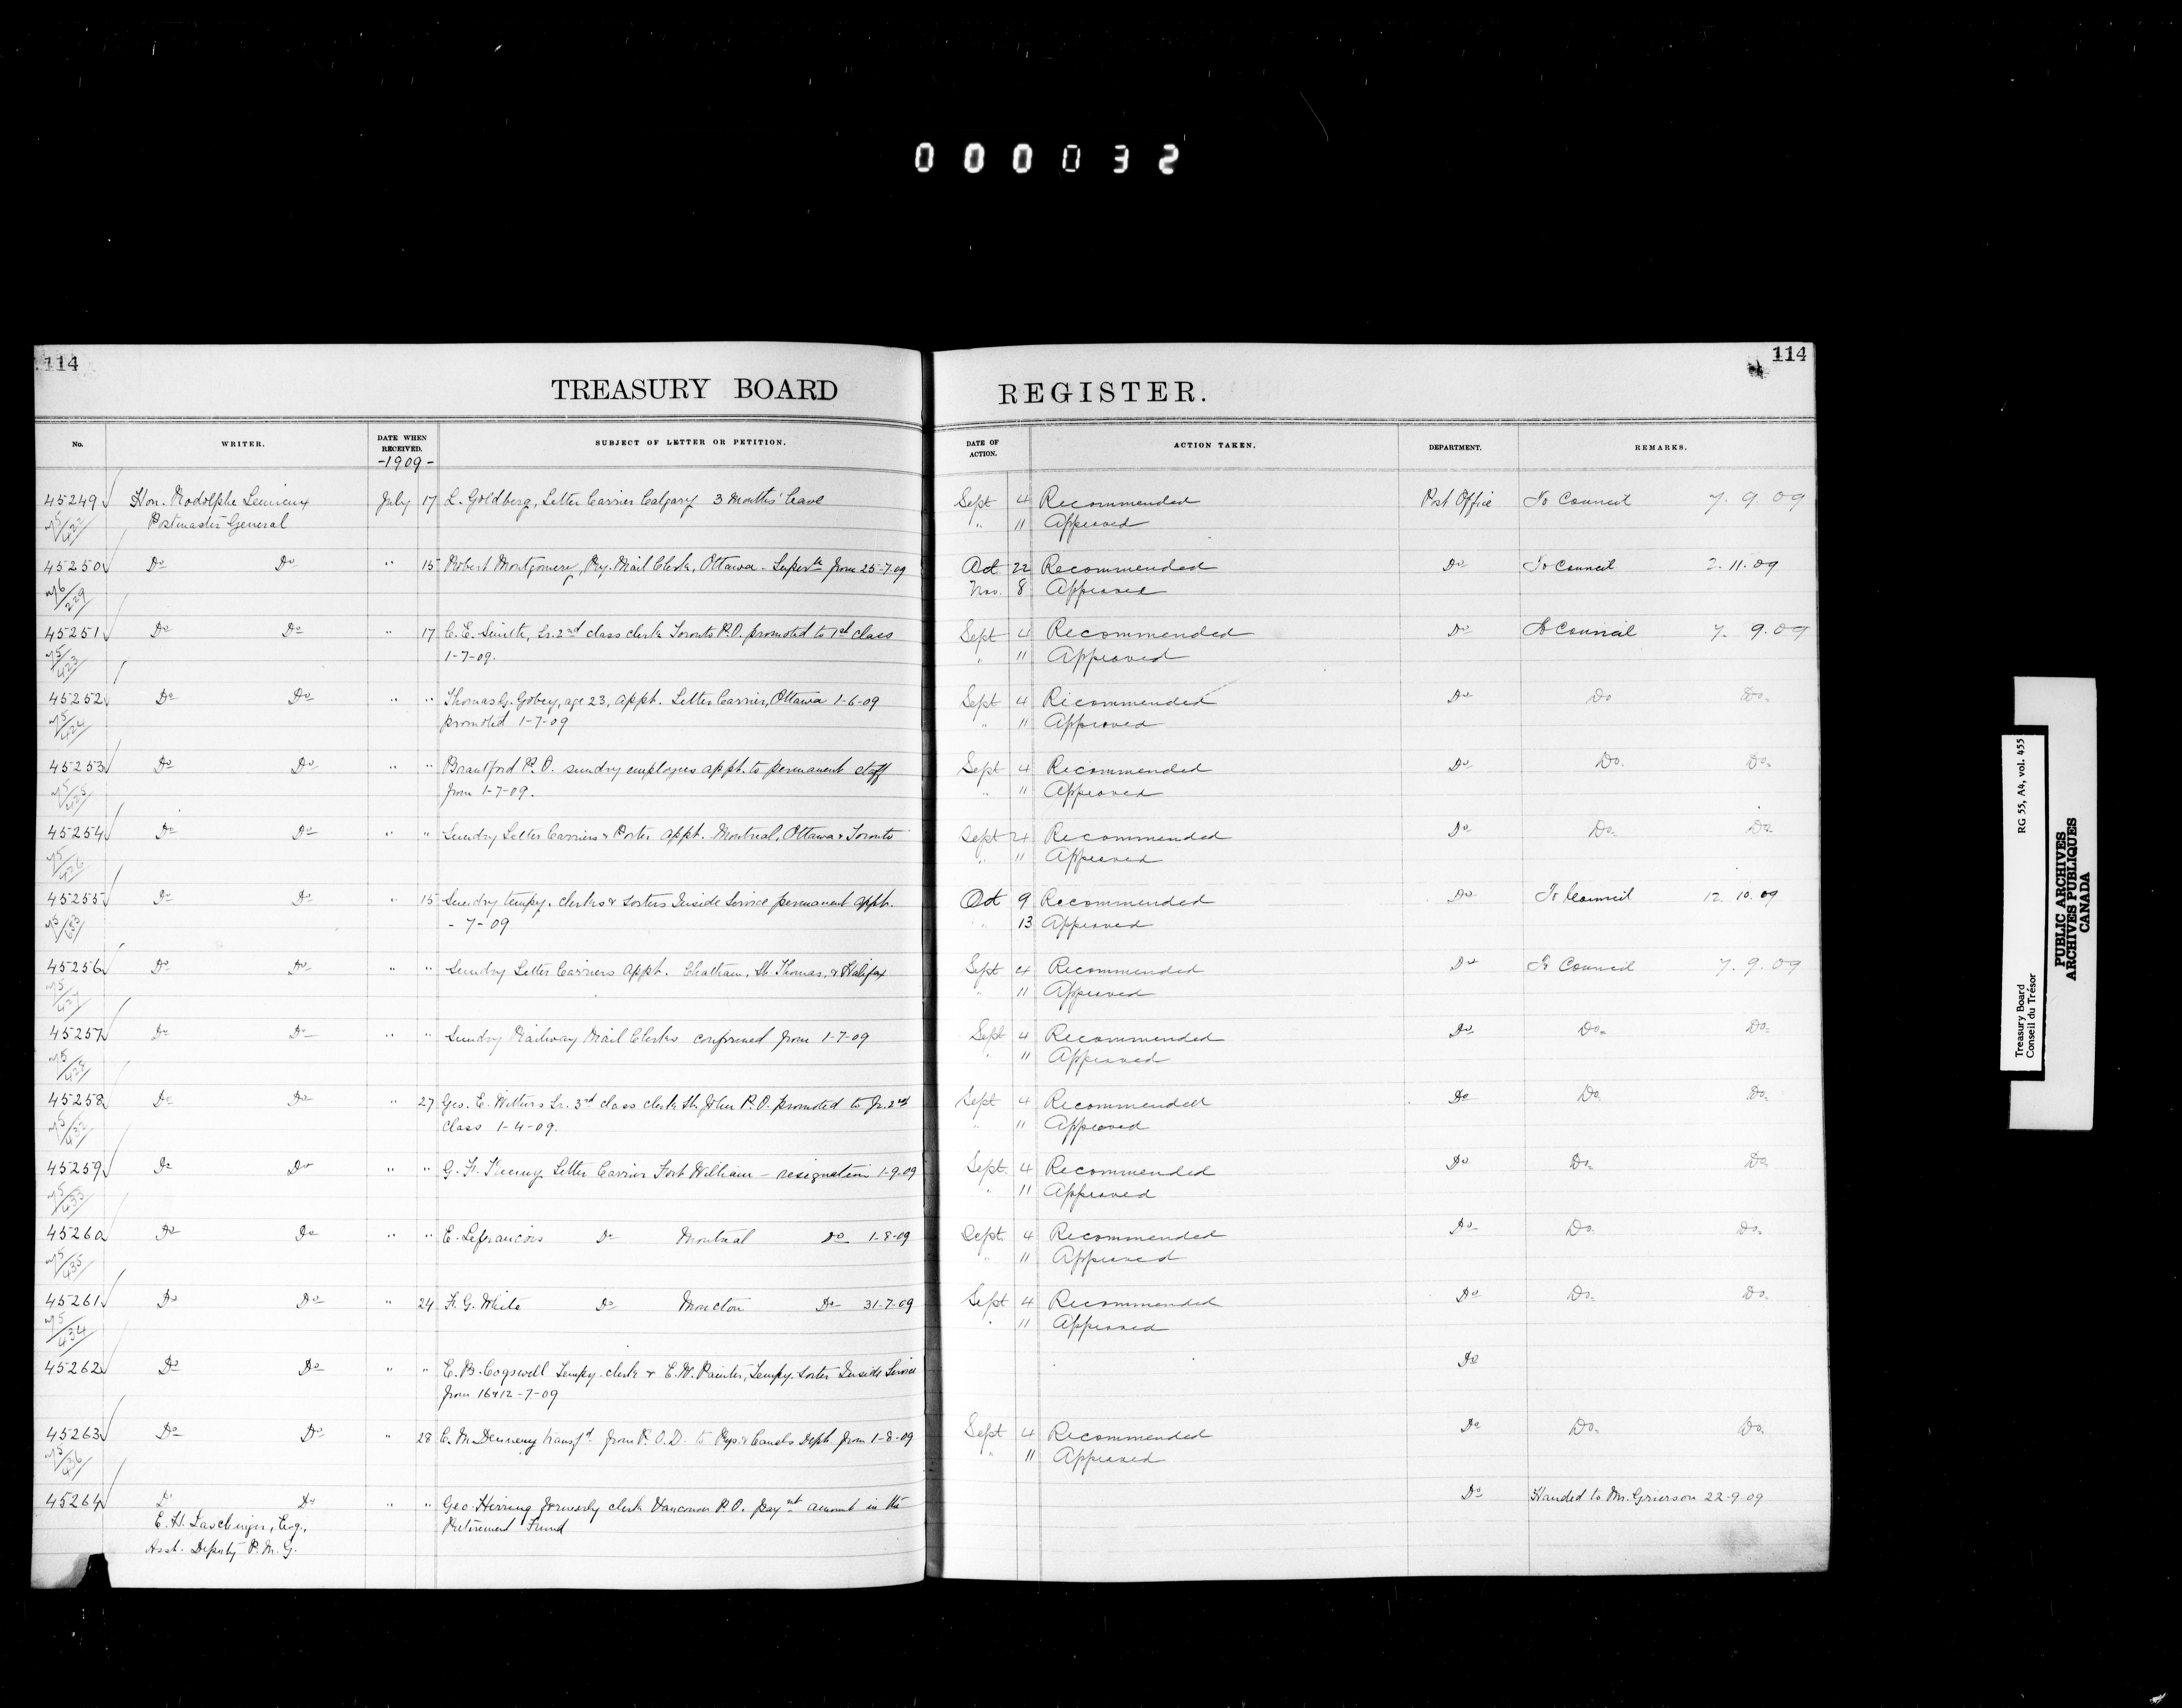 000032
114
114
TREASURY BOARD REGISTER.
No. WRITER. DATE WHEN RECEIVED. SUBJECT OF LETTER OR PETITION. DATE OF ACTION. ACTION TAKEN. DEPARTMENT. REMARKS.
-1909-
45249 Hon. Rodolphe Lemieux July 17 L. Goldberg, Letter Carrier Calgary 3 Months' leave Sept 4 Recommended Post Office To Council 7. 9. 09
Postmaster General " 11 Approved
45250 Do Do " 15 Robert Montgomery, Ry. Mail Clerk, Ottawa - Superte from 25-7-09 Oct 22 Recommended Do To Council 2. 11. 09
M6/229 Nov. 8 Approved
45251 Do Do " 17 C. E. Smith, Sr. 2nd class clerk Toronto P.O. promoted to 1st class Sept 4 Recommended Do To Council 7. 9. 09
M5/423 1-7-09. " 11 Approved
45252 Do Do " " Thomas G. Gobey, age 23, appt. Letter Carrier, Ottawa 1-6-09 Sept 4 Recommended Do Do Do.
M5/424 promoted 1-7-09 " 11 Approved
45253 Do Do " " Brantford P.O. sundry employees appt. to permanent staff Sept 4 Recommended Do Do. Do.
M5/425 from 1-7-09. " 11 Approved
45254 Do Do " " Sundry Letter Carriers & Porter appt. Montreal, Ottawa & Toronto Sept 4 Recommended Do Do. Do.
M5/426 " 11 Approved
45255 Do Do " 15 Sundry tempy. clerks & sorters Inside Service permanent appt. Oct 9 Recommended Do To Council 12. 10. 09
- 7-09 " 13 Approved
45256 Do Do " " Sundry Letter Carriers appt. Chatham, St. Thomas, & Halifax Sept 4 Recommended Do To Council 7. 9. 09
M5/427 " 11 Approved
45257 Do Do " " Sundry Railway Mail Clerks confirmed from 1-7-09 Sept 4 Recommended Do Do. Do.
M5/428 " 11 Approved
45258 Do Do " 27 Geo. E. Withers Sr. 3rd class clerk St. John P.O. promoted to Jr. 2nd Sept 4 Recommended Do Do. Do.
M5/432 class 1-4-09. " 11 Approved
45259 Do Do " " G. F. Letter Carrier Fort William - resignation 1-9-09 Sept. 4 Recommended Do Do. Do.
M5/433 " 11 Approved
45260 Do Do " " E. Lefrancois Do Montreal Do 1-8-09 Sept. 4 Recommended Do Do. Do.
M5/435 " 11 Approved
45261 Do Do " 24 F. G. White Do Moncton Do 31-7-09 Sept 4 Recommended Do Do. Do.
M5/434 " 11 Approved
45262 Do Do " " E. B. Cogswell Tempy. clerk & E. W. Painter, Tempy. Sorter Inside Service Do
from 16 & 12-7-09
45263 Do Do " 28 C. M. Denneny transfd. from P.O.D. to Rys. & Canals Dept. from 1-8-09 Sept 4 Recommended Do Do. Do.
M5/436 " 11 Approved
45264 Do Do " " Geo. Herring formerly clerk Vancouver P.O. paynt amount in the Do Handed to Mr. Grierson 22-9-09
E. H. Laschinger, Esq., Retirement Fund
Asst. Deputy P.M.G.
Treasury Board RG 55, A4, vol. 455
Conseil du Trésor
PUBLIC ARCHIVES
ARCHIVES PUBLIQUES
CANADA